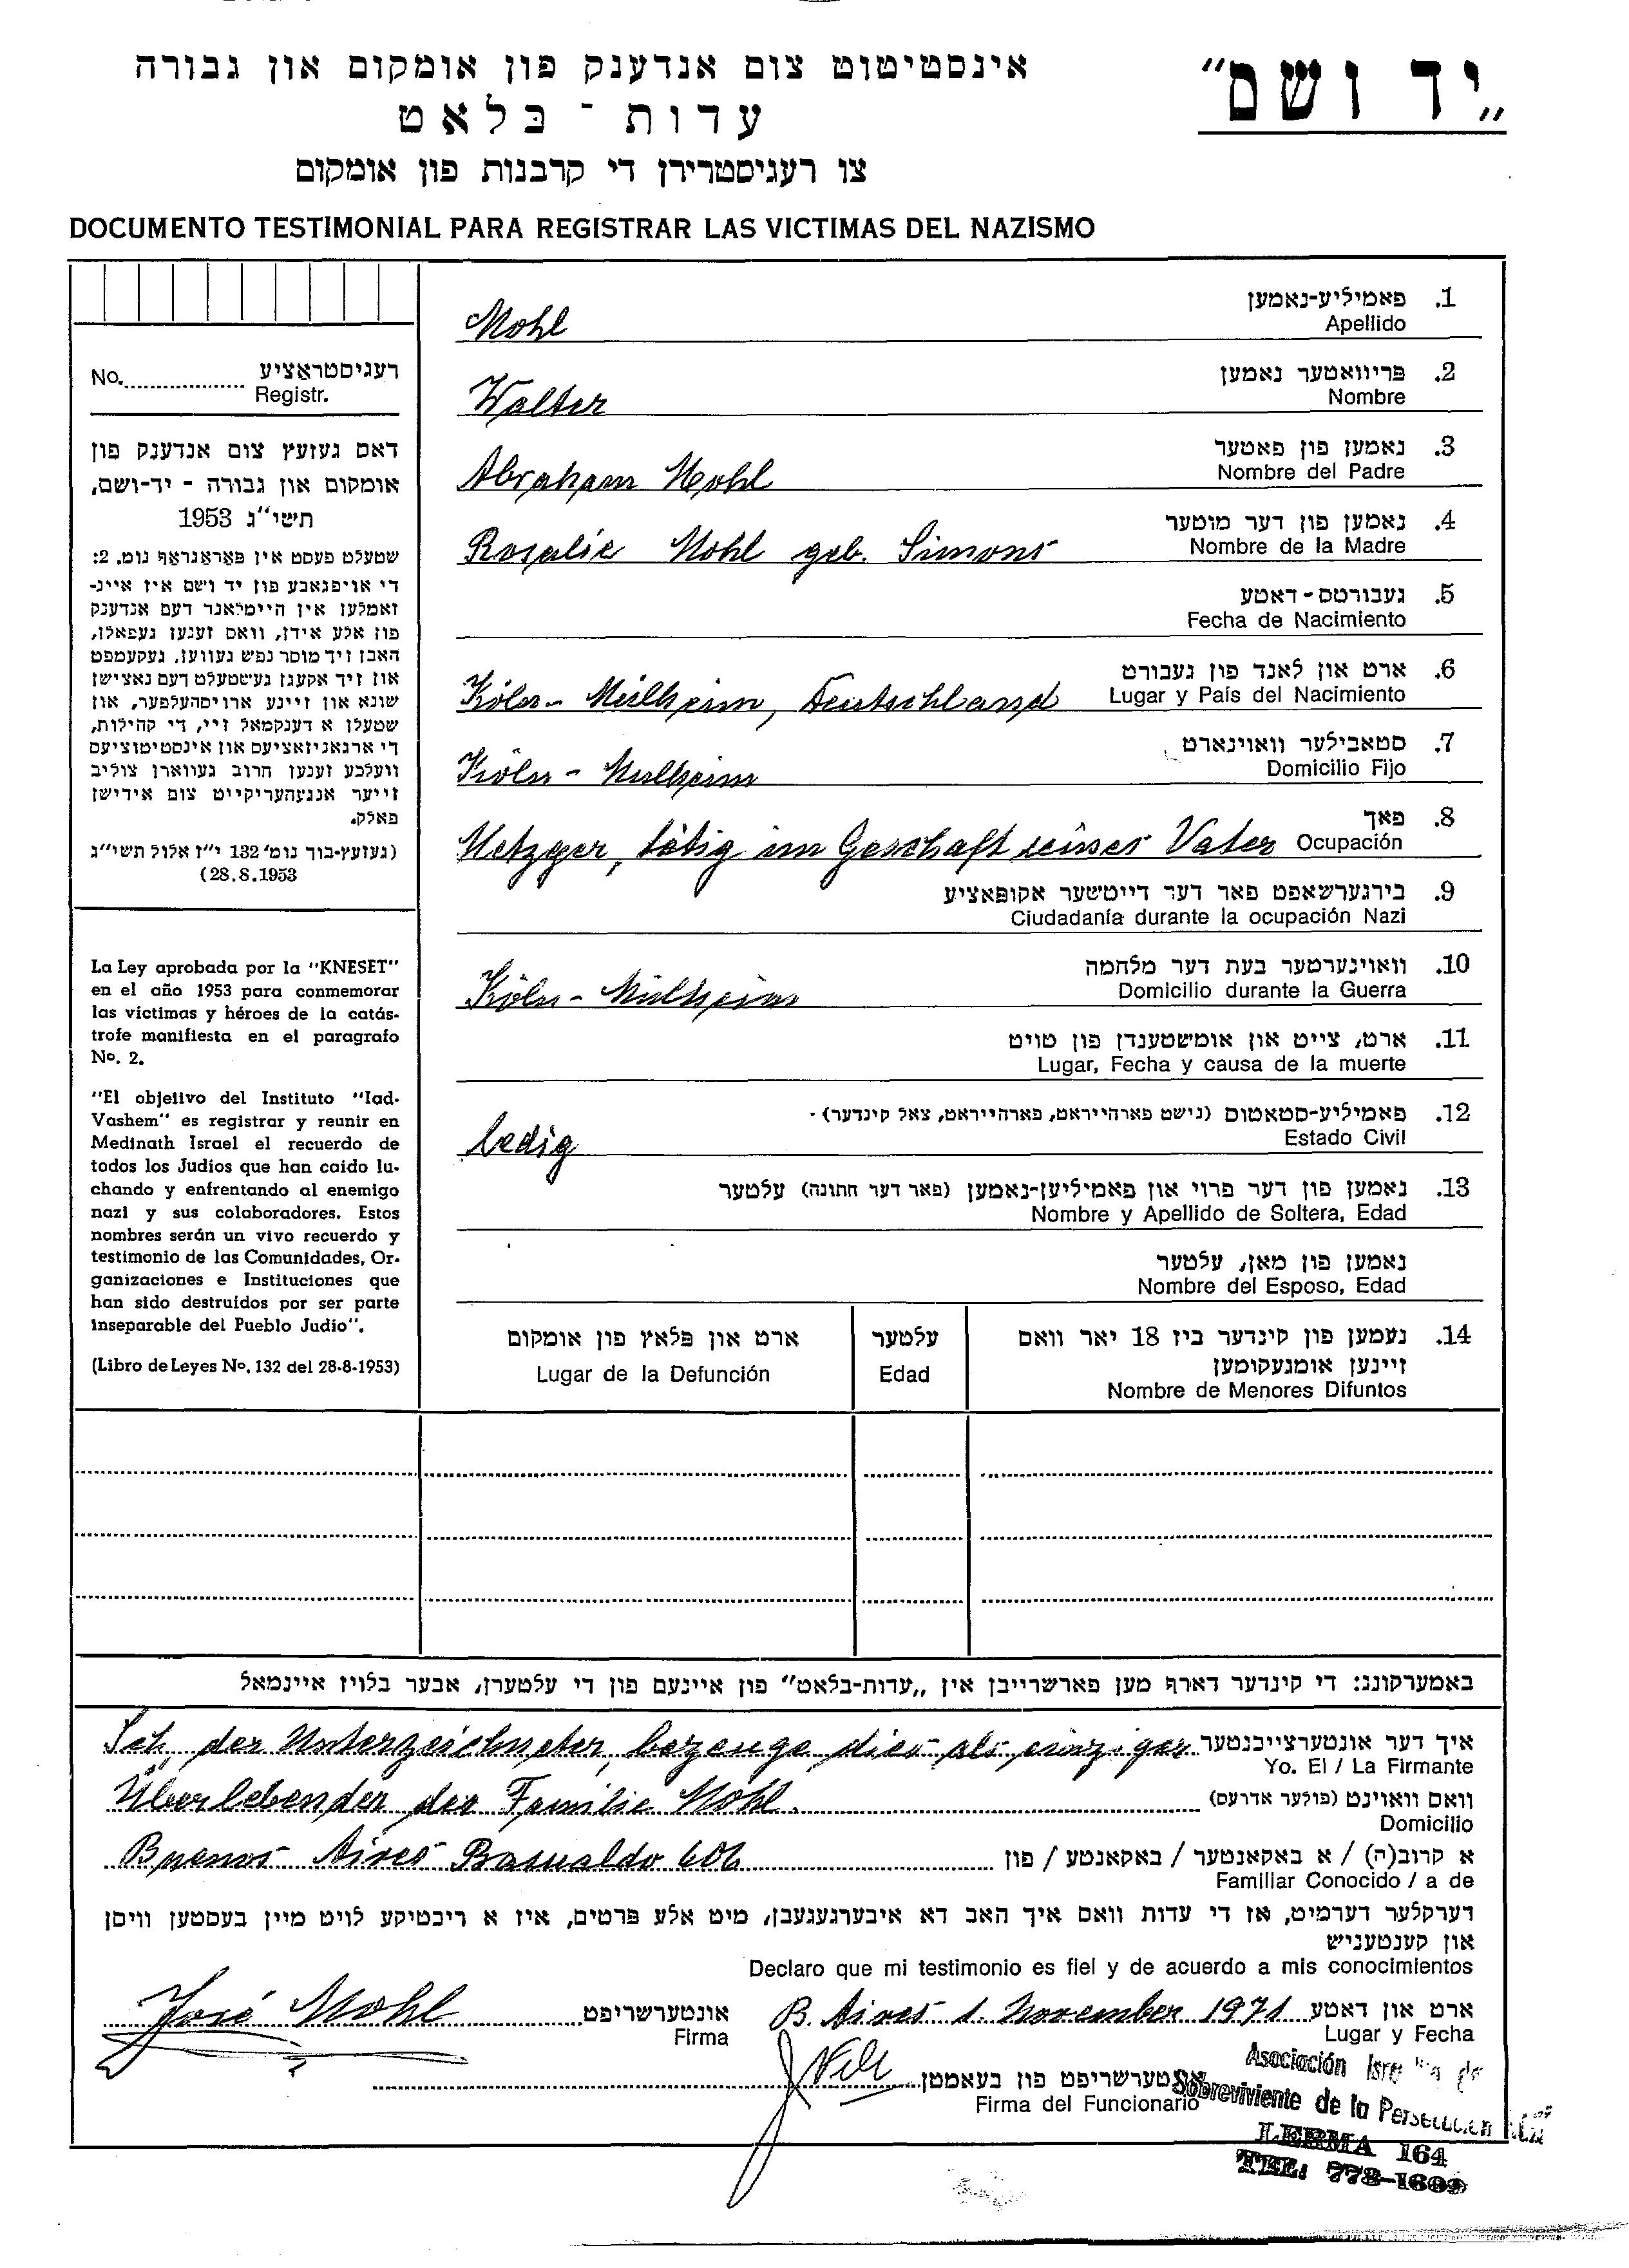 „יד ושם“
אינסטיטוט צום אנדענק פון אומקום און גבורה
עדות־בלאט
צו רעגיסטרירן די קרבנות פון אומקום
DOCUMENTO TESTIMONIAL PARA REGISTRAR LAS VICTIMAS DEL NAZISMO
No. רעגיסטראציע
Registr.
דאס געזעץ צום אנדענק פון
אומקום און גבורה - יד-ושם,
תשי"ג 1953
שטעלט פעסט אין פאראגראף נומ. 2:
די אויפגאבע פון יד ושם איז איינ-
זאמלען אין היימלאנד דעם אנדענק
פון אלע אידן, וואס זענען געפאלן,
האבן זיך מוסר נפש געווען, געקעמפט
און זיך אקעגן געשטעלט דעם נאצישן
שונא און זיינע ארויסהעלפער, און
שטעלן א דענקמאל זיי, די קהילות,
די ארגאניזאציעס און אינסטיטוציעס
וועלכע זענען חרוב געווארן צוליב
זייער אנגעהעריקייט צום אידישן
פאלק.
(געזעץ-בוך נומ' 132 י"ז אלול תשי"ג
28.8.1953)
La Ley aprobada por la "KNESET"
en el año 1953 para conmemorar
las víctimas y héroes de la catás-
trofe manifiesta en el paragrafo
No. 2.
"El objetivo del Instituto "Iad-
Vashem" es registrar y reunir en
Medinath Israel el recuerdo de
todos los Judíos que han caido lu-
chando y enfrentando al enemigo
nazi y sus colaboradores. Estos
nombres serán un vivo recuerdo y
testimonio de las Comunidades, Or-
ganizaciones e Instituciones que
han sido destruidos por ser parte
inseparable del Pueblo Judío".
(Libro de Leyes No. 132 del 28-8-1953)
1. פאמיליע-נאמען
Apellido
Mohl
2. פריוואטער נאמען
Nombre
Walter
3. נאמען פון פאטער
Nombre del Padre
Abraham Mohl
4. נאמען פון דער מוטער
Nombre de la Madre
Rosalie Mohl geb. Simons
5. געבורטס-דאטע
Fecha de Nacimiento
6. ארט און לאנד פון געבורט
Lugar y País del Nacimiento
Köln-Mülheim, Deutschland
7. סטאבילער וואוינארט
Domicilio Fijo
Köln-Mülheim
8. פאך
Ocupación
Metzger, tätig im Geschäft seines Vater
9. בירגערשאפט פאר דער דייטשער אקופאציע
Ciudadanía durante la ocupación Nazi
10. וואוינערטער בעת דער מלחמה
Domicilio durante la Guerra
Köln-Mülheim
11. ארט, צייט און אומשטענדן פון טויט
Lugar, Fecha y causa de la muerte
12. פאמיליע-סטאטוס (נישט פארהייראט, פארהייראט, צאל קינדער)
Estado Civil
ledig
13. נאמען פון דער פרוי און פאמיליען-נאמען (פאר דער חתונה) עלטער
Nombre y Apellido de Soltera, Edad
נאמען פון מאן, עלטער
Nombre del Esposo, Edad
14. נעמען פון קינדער ביז 18 יאר וואס
זיינען אומגעקומען
Nombre de Menores Difuntos
עלטער
Edad
ארט און פלאץ פון אומקום
Lugar de la Defunción
באמערקונג: די קינדער דארף מען פארשרייבן אין „עדות-בלאט" פון איינעם פון די עלטערן, אבער בלויז איינמאל
איך דער אונטערצייכנטער
Yo. El / La Firmante
Ich der Unterzeichneter, bezeuge dies als einziger
וואס וואוינט (פולער אדרעס)
Domicilio
Überlebender der Familie Mohl.
א קרוב(ה) / א באקאנטער / באקאנטע / פון
Familiar Conocido / a de
Buenos Aires Basualdo 606
דערקלער דערמיט, אז די עדות וואס איך האב דא איבערגעגעבן, מיט אלע פרטים, איז א ריכטיקע לויט מיין בעסטען וויסן
און קענטעניש
Declaro que mi testimonio es fiel y de acuerdo a mis conocimientos
ארט און דאטע
Lugar y Fecha
B. Aires 1. November 1971
אונטערשריפט
Firma
José Mohl
אונטערשריפט פון באאמטן
Firma del Funcionario
Asociación
Sobreviviente de la Persecución
LERMA 164
TEL: 773-1609